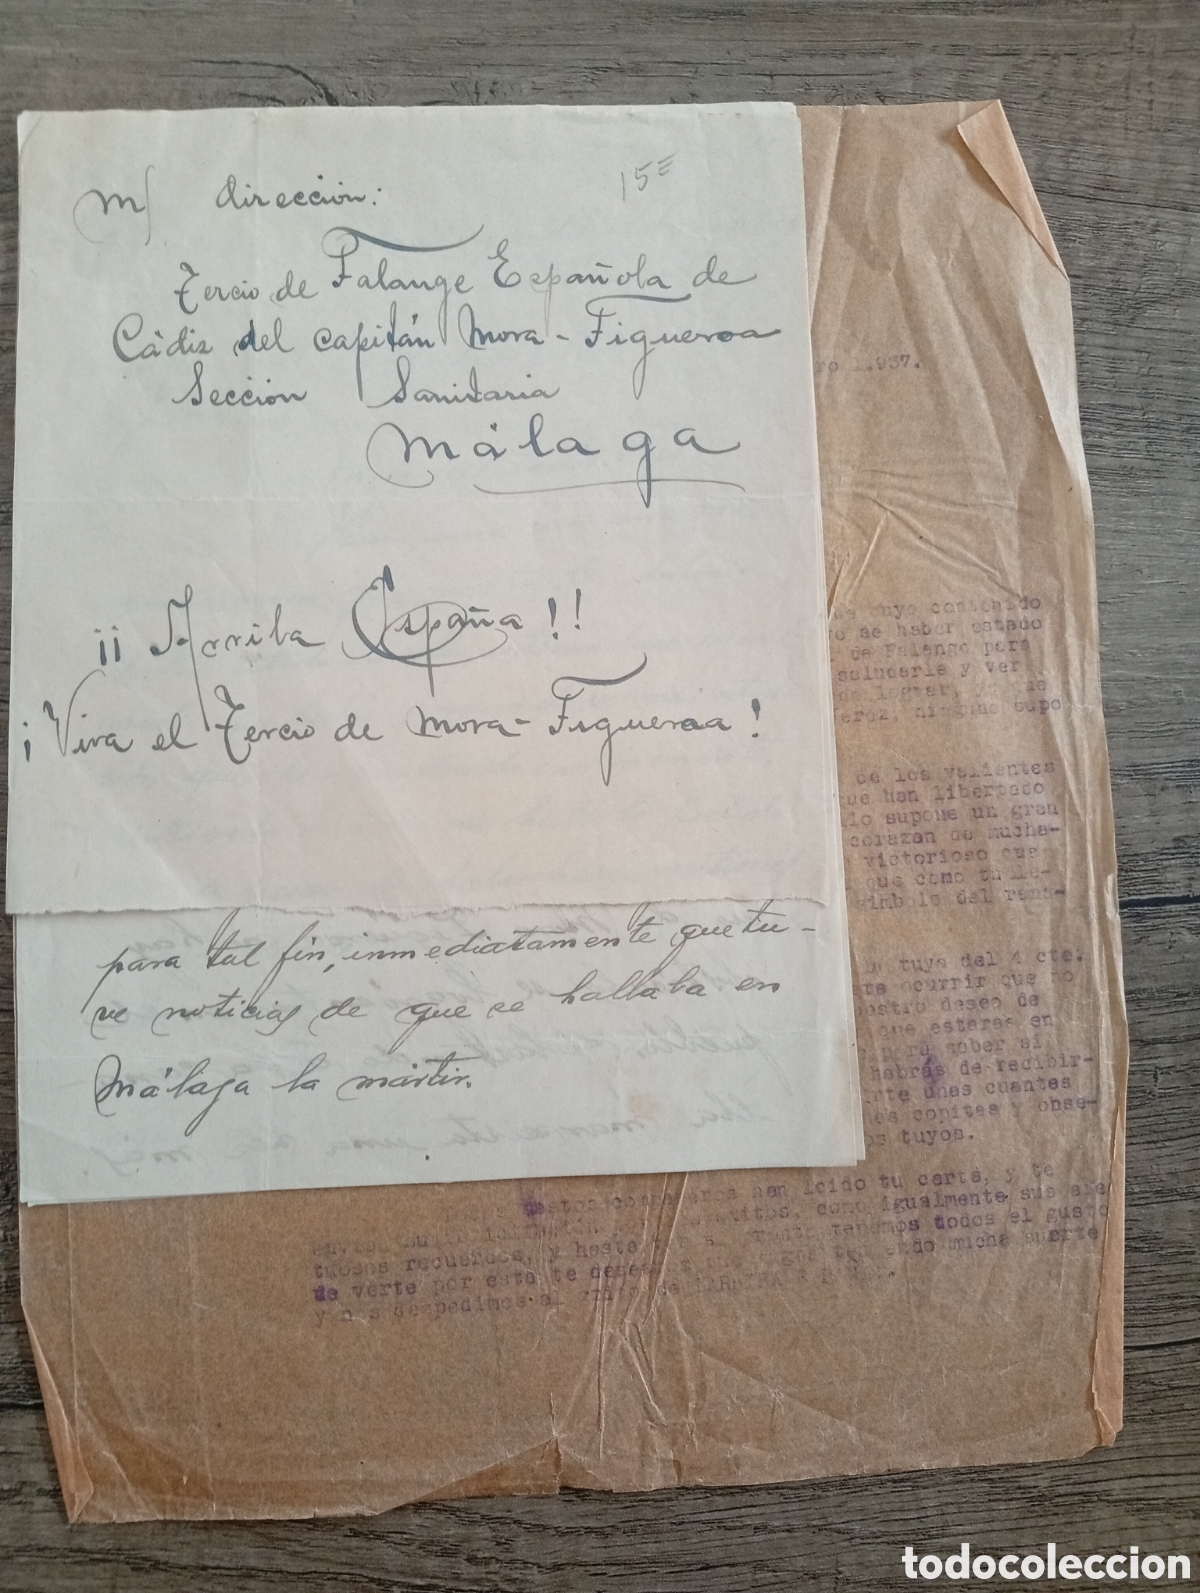 15=
m/ dirección:
Tercio de Falange Española de
Cádiz del capitán Mora-Figueroa
Sección Sanitaria
Málaga
¡¡ Arriba España !!
¡Viva el Tercio de Mora-Figueroa!
para tal fin, inmediatamente que tu-
ve noticias de que se hallaba en
Málaga la mártir.
ro 1.937.
cuyo contenido
o se haber estado
de Falange para
saludarle y ver
supo
de los valientes
que han libertado
lo supone un gran
corazon de mucha-
victorioso que
que como tu
simbolo del
tuya del 4 cte.
ocurrir que no
deseo de
que estaras en
saber si
habrás de recibir-
unas cuantas
copitas y obse-
os tuyos.
han leido tu carta, y te
como igualmente sus
tuosos recuerdos, y hasta todos el gusto
de verte por esto te mucha suerte
y n s despedimos al de
todocoleccion